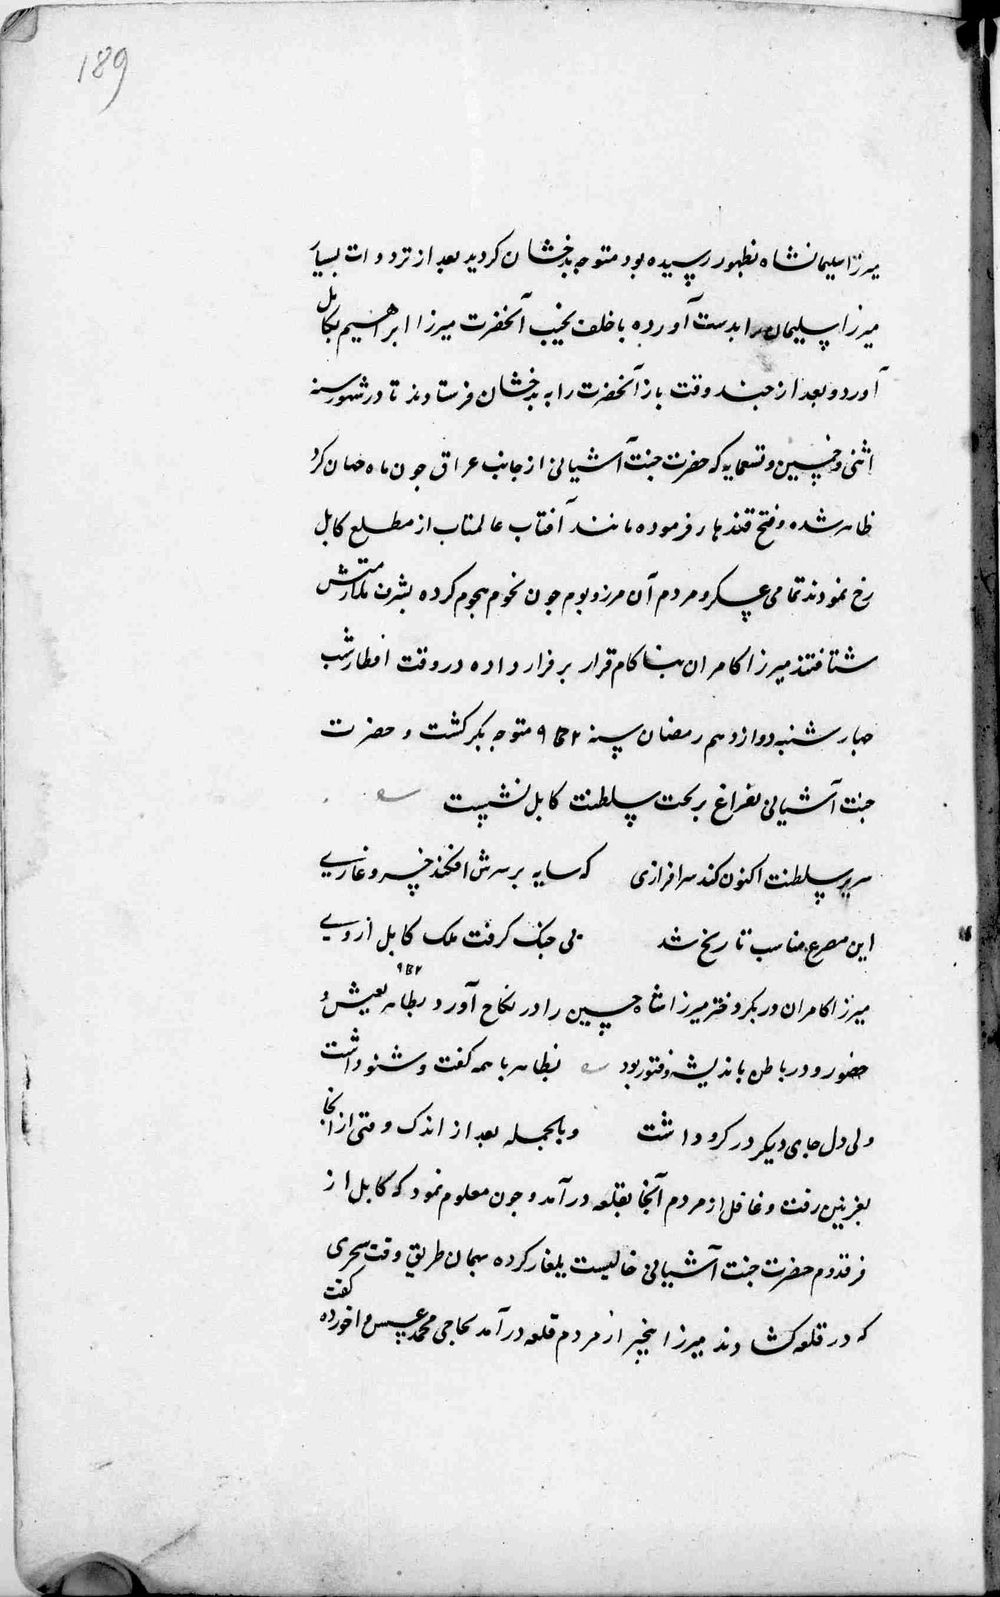 189
میرزا سلیمانشاه بظهور رسیده بود متوجه بدخشان کردید بعد از ترددات بسیار
میرزا سلیمان را بدست آورده با خلف نجیب آنحضرت میرزا ابراهیم بکابل
آورد و بعد از چند وقت باز آنحضرت را به بدخشان فرستادند تا در شهور سنه
اثنی و خمسین و تسعمایه که حضرت جنت آشیانی از جانب عراق جون ماه جهان کرد
ظاهر شده و فتح قندهار فرموده مانند آفتاب عالمتاب از مطلع کابل
رخ نمودند تمامی عسکر و مردم آن مرز و بوم جون نجوم هجوم کرده بشرف ملازمتش
شتافتند میرزا کامران بناکام قرار بر فرار داده در وقت افطار شب
جهارشنبه دوازدهم رمضان سنه ۹۵۲ متوجه بکر کشت و حضرت
جنت آشیانی بفراغ بر تخت سلطنت کابل نشست
سریر سلطنت اکنون کند سرافرازی که سایه بر سرش افکند خسرو غازی
این مصرع مناسب تاریخ شد بی جنک کرفت ملک کابل از وی
۹۵۲
میرزا کامران در بکر دختر میرزا شاه حسین را در نکاح آورد و بظاهر بعیش و
حضور و در باطن باندیشه و فتور بود بظاهر با همه کفت و شنو داشت
ولی دل جای دیکر در کرو داشت و بالجمله بعد از اندک وقتی از انجا
بغزنین رفت و غافل از مردم آنجا بقلعه درآمد و جون معلوم نمود که کابل از
فر قدوم حضرت جنت آشیانی خالیست یلغار کرده بهمان طریق وقت سحری
که در قلعه کشادند میرزا بیخبر از مردم قلعه درآمد بحاجی محمد عسس وا خورده کفت